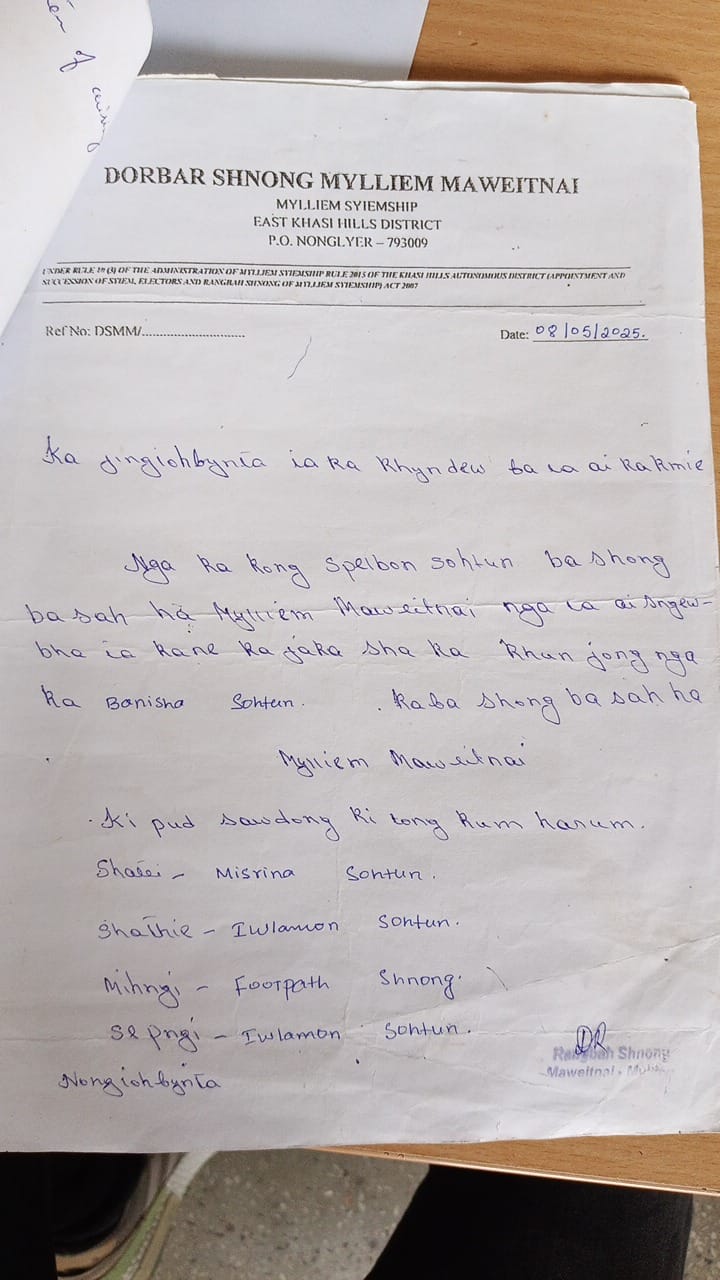 DORBAR SHNONG MYLLIEM MAWEITNAI
MYLLIEM SYIEMSHIP
EAST KHASI HILLS DISTRICT
P.O. NONGLYER – 793009
UNDER RULE 10 (3) OF THE ADMINISTRATION OF MYLLIEM SYIEMSHIP RULE 2015 OF THE KHASI HILLS AUTONOMOUS DISTRICT (APPOINTMENT AND
SUCCESSION OF SYIEM, ELECTORS AND RANGBAH SHNONG OF MYLLIEM SYIEMSHIP) ACT 2007
Ref No: DSMM/............................
Date: 08/05/2025.
Ka jingiohbynta ia ka Khyndew ba la ai ka kmie
Nga ka kong Spelbon Sohtun ba shong
ba sah ha Mylliem Maweitnai nga la ai sngew-
bha ia kane ka jaka sha ka khun jong nga
ka Banisha Sohtun. kaba shong ba sah ha
Mylliem Maweitnai
Ki pud sawdong ki long kum harum.
Shatei - Misrina Sohtun.
Shathie - Iwlamon Sohtun.
Mihngi - Footpath Shnong.
Sepngi - Iwlamon Sohtun.
Nongiohbynta
DR
Rangbah Shnong
Maweitnai -